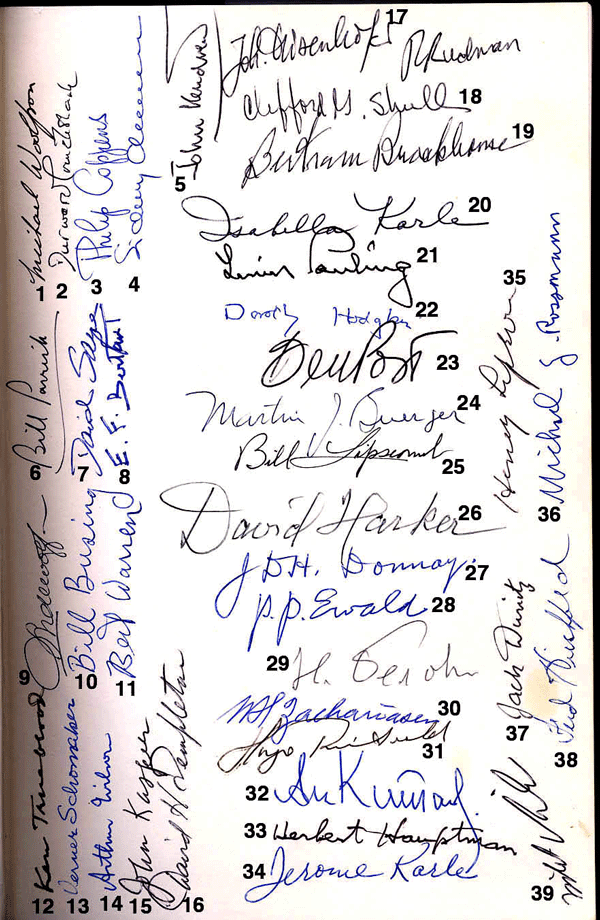 1 Michael Woolfson
2 Durward Cruickshank
3 Philip Coppens
4 Sidney
5 John Kendrew
6 Bill Parrish
7 David Sayre
8 E. F. Bertaut
9
10 Bill Busing
11 Bert Warren
12 Ken Trueblood
13 Verner Schomaker
14 Arthur Wilson
15 John Kasper
16 David H Templeton
17
P Rudman
Clifford G. Shull 18
Bertram Brockhouse 19
Isabella Karle 20
Linus Pauling 21
Dorothy Hodgkin 22
Ben Post 23
Martin J. Buerger 24
Bill Lipscomb 25
David Harker 26
J D H. Donnay. 27
P. P. Ewald 28
29 H.
WH Zachariasen 30
Hugo Rietveld 31
32
33 Herbert Hauptman
34 Jerome Karle
35 Henry Lipson
36 Michael G. Rossmann
37 Jack Dunitz
38
39